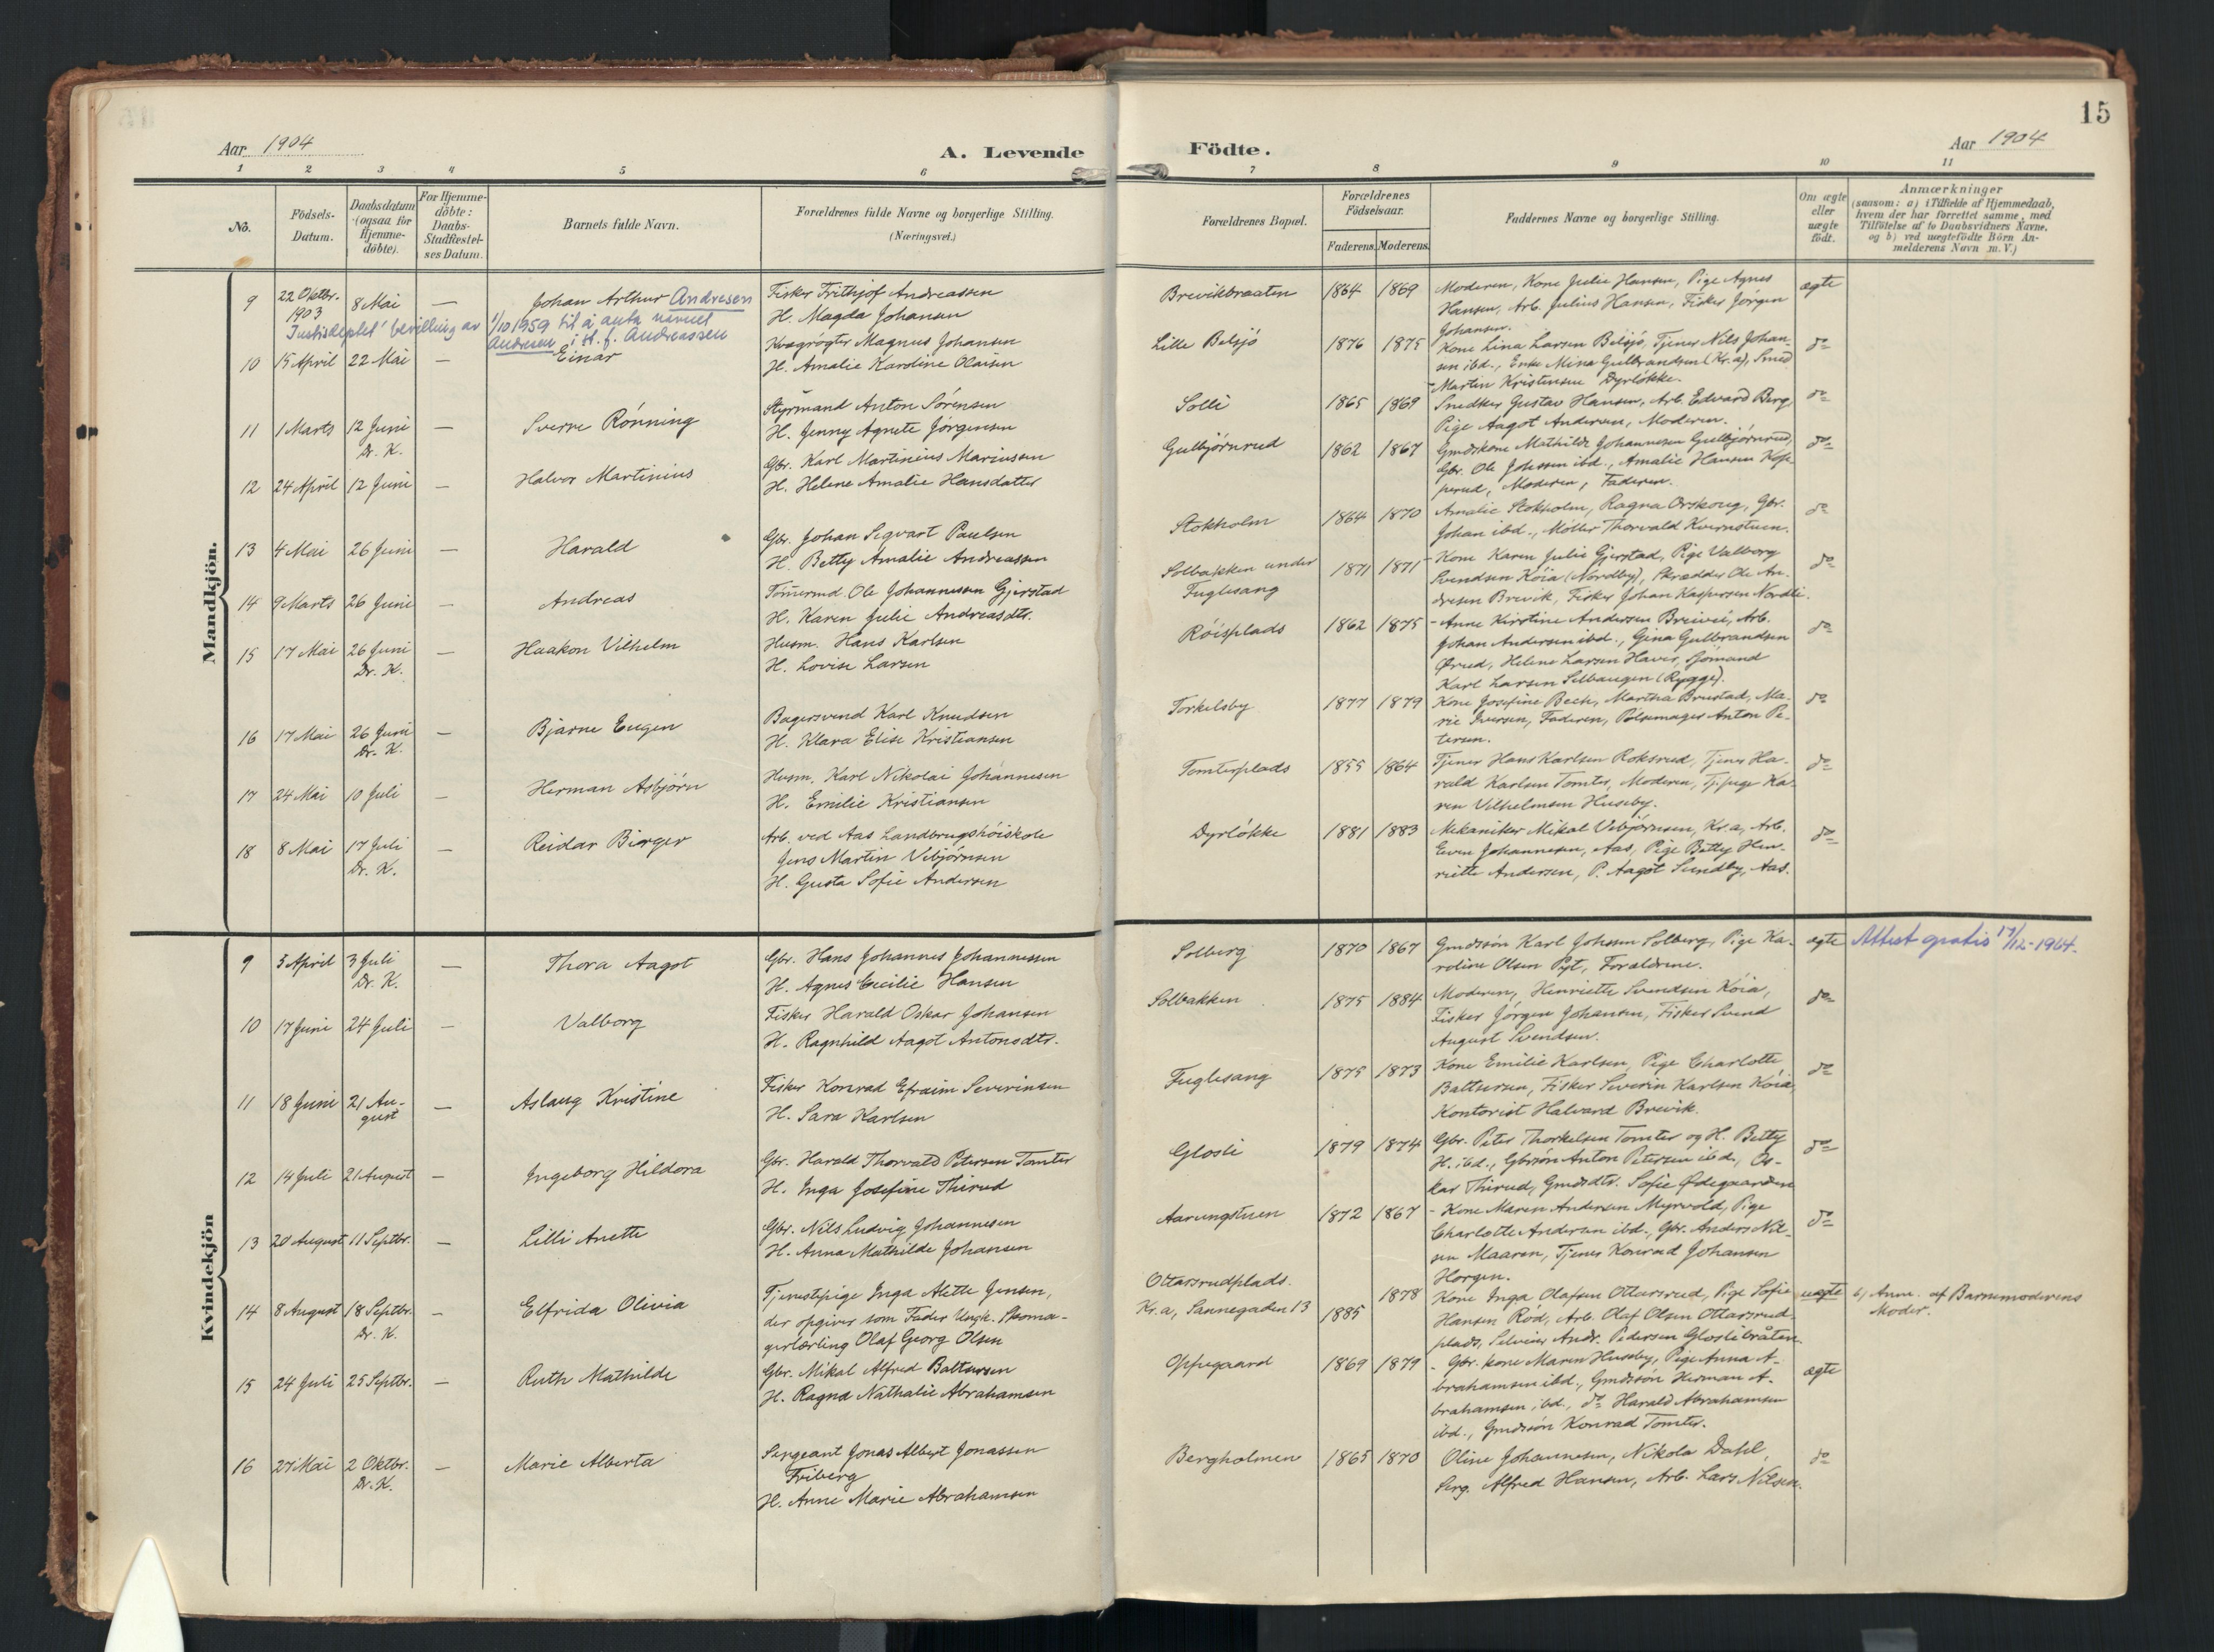 15
Aar 1904
A. Levende
Födte.
Aar 1904
1 2 3 4 5 6 7 8 9 10 11
No.
Födsels-
Datum.
Daabsdatum
(ogsaa for
Hjemme-
döbte).
For Hjemme-
döbte:
Daabs-
Stadfæstel-
ses Datum.
Barnets fulde Navn.
Forældrenes fulde Navne og borgerlige Stilling.
(Næringsvei.)
Forældrenes Bopæl.
Forældrenes
Födselsaar.
Faderens. Moderens.
Faddernes Navne og borgerlige Stilling.
Om ægte
eller
uægte
födt.
Anmærkninger
(saasom: a) i Tilfælde af Hjemmedaab,
hvem der har forrettet samme, med
Tilföielse af to Daabsvidners Navne,
og b) ved uægtefödte Börn An-
melderens Navn m. V.)
Mandkjön.
9 22 Oktbr. 1903 8 Mai — Johan Arthur Andresen
Fisker Frithjof Andreassen
H. Magda Johansen
Brevikbraaten 1864 1869
Moderen, Kone Julie Hansen, Pige Agnes
Hansen, Arb. Julius Hansen, Fisker Jørgen
Johansen.
ægte
Justisdeptet' bevilling av 1/10 1959 til å anta navnet
Andresen i st. f. Andreassen
10 15 April 22 Mai — Einar
Kvægrøgter Magnus Johansen
H. Amalie Karoline Olaisen
Lille Belsjø 1876 1875
Kone Lina Larsen Belsjø, Tjener Nils Johan-
sen ibd., Enke Mina Gulbrandsen (Kr.a), Smed
Martin Kristensen Dyrløkke.
do
11 1 Marts 12 Juni Dr. K. — Sverre Rønning
Styrmand Anton Sørensen
H. Jenny Agnete Jørgensen
Solli 1865 1869
Snedker Gustav Hansen, Arb. Edvard Berg,
Pige Aagot Andersen, Moderen.
do
12 24 April 12 Juni — Halvor Martinius
Gbr. Karl Martinius Mariusen
H. Helene Amalie Hansdatter
Gulbjørnrud 1862 1867
Gmdskone Mathilde Johannesen Gulbjørnrud,
Gbr. Ole Johssen ibd., Amalie Hansen Kop-
perud, Moderen, Faderen.
do
13 4 Mai 26 Juni — Harald
Gbr. Johan Segvart Paulsen
H. Betty Amalie Andreassen
Stokholm 1864 1870
Amalie Stokholm, Ragna Orskoug, Gbr.
Johan ibd., Møller Thorvald Kvernstuen.
do
14 9 Marts 26 Juni — Andreas
Tømermd. Ole Johannessen Gjerstad
H. Karen Julie Andreasdtr.
Solbakken under
Fuglesang 1871 1871
Kone Karen Julie Gjerstad, Pige Valborg
Svendsen Køia (Nordby), Skrædder Ole An-
dresen Brevik, Fisker Johan Kaspersen Nordli.
do
15 17 Mai 26 Juni Dr. K. — Haakon Vilhelm
Husm. Hans Karlsen
H. Lovise Larsen
Røisplads 1862 1875
Anne Kirstine Andersen Breivei, Arb.
Johan Andersen ibd., Gina Gulbrandsen
Ørud, Helene Larsen Haver, Sjømand
Karl Larsen Selbaugen (Rygge).
do
16 17 Mai 26 Juni Dr. K. — Bjarne Eugen
Bagersvend Karl Knudsen
H. Klara Elise Kristiansen
Torkelsby 1877 1879
Kone Josefine Bech, Martha Brustad, Ma-
rie Iversen, Faderen, Pølsemager Anton Pe-
tersen.
do
17 24 Mai 10 Juli — Herman Asbjørn
Husm. Karl Nikolai Johannesen
H. Emilie Kristiansen
Tomterplads 1855 1864
Tjener Hans Karlsen Roksrud, Tjener Ha-
rald Karlsen Tomter, Moderen, Tj.pige Ka-
ren Vilhelmsen Huseby.
do
18 8 Mai 17 Juli Dr. K. — Reidar Birger
Arb. ved Aas Landbrugshøiskole
Jens Martin Vibjørnsen
H. Gusta Sofie Andersen
Dyrløkke 1881 1883
Mekaniker Mikal Vibjørnsen, Kr.a, Arb.
Even Johannesen, Aas, Pige Betty Hen-
riette Andersen, P. Aagot Sundby, Aas.
do
Kvindekjön
9 5 April 3 Juli Dr. K. — Thora Aagot
Gbr. Hans Johannes Johannessen
H. Agnes Cecilie Hansen
Solberg 1870 1867
Gmdssøn Karl Johssen Solberg, Pige Ka-
roline Olsen Pyt, Forældrene.
ægte Attest gratis 17/12-1964.
10 17 Juni 24 Juli — Valborg
Fisker Harald Oskar Johansen
H. Ragnhild Aagot Antonsdtr.
Solbakken 1875 1884
Moderen, Henriette Svendsen Køia,
Fisker Jørgen Johansen, Fisker Svend
August Svendsen.
do
11 18 Juni 21 Au-
gust — Aslaug Kristine
Fisker Konrad Efraim Severinsen
H. Sara Karlsen
Fuglesang 1875 1873
Kone Emilie Karlsen, Pige Charlotte
Baltsersen, Fisker Severin Karlsen Køia,
Kontorist Halvard Brevik.
do
12 14 Juli 21 August — Ingeborg Hildora
Gbr. Harald Thorvald Petersen Tomter
H. Inga Josefine Thirud
Glosli 1879 1874
Gbr. Peter Thorkelsen Tomter og H. Betty
H. ibd., Gbrsøn Anton Petersen ibd., Os-
kar Thirud, Gmdsdtr. Sofie Ødegaarden
do
13 20 August 11 Septbr. — Lilli Anette
Gbr. Nils Ludvig Johannesen
H. Anna Mathilde Johansen
Aarungstuen 1872 1867
Kone Maren Andersen Myrvold, Pige
Charlotte Andersen ibd., Gbr. Anders Nil-
sen Maaren, Tjener Konrad Johansen
Horgen.
do
14 8 August 18 Septbr. Dr. K. — Elfrida Olivia
Tjenestepige Inga Alette Jensen,
der opgiver som Fader Ungk. Skoma-
gerlærling Olaf Georg Olsen
Ottarsrudplads.
Kr.a, Sannegaden 13 1885 1878
Kone Inga Olafsen Ottarsrud, Pige Sofie
Hansen Rød, Arb. Olaf Olsen Ottarsrud-
plads, Selveier Andr. Pedersen Gloslibråten.
uægte b) Anm. af Barnemoderens
Moder.
15 24 Juli 25 Septbr. — Ruth Mathilde
Gbr. Mikal Alfred Baltsersen
H. Ragna Nathalie Abrahamsen
Oppegaard 1869 1879
Gbr. kone Maren Huseby, Pige Anna A-
brahamsen ibd., Gmdssøn Herman A-
brahamsen ibd., do Harald Abrahamsen
ibd., Gmdssøn Konrad Tomter.
ægte
16 27 Mai 2 Oktbr. Dr. K. — Marie Alberta
Sergeant Jonas Albert Jonassen
Friberg
H. Anne Marie Abrahamsen
Bergholmen 1865 1870
Oline Johannesen, Nikola Dahl,
Serg. Alfred Hansen, Arb. Lars Nilsen.
do